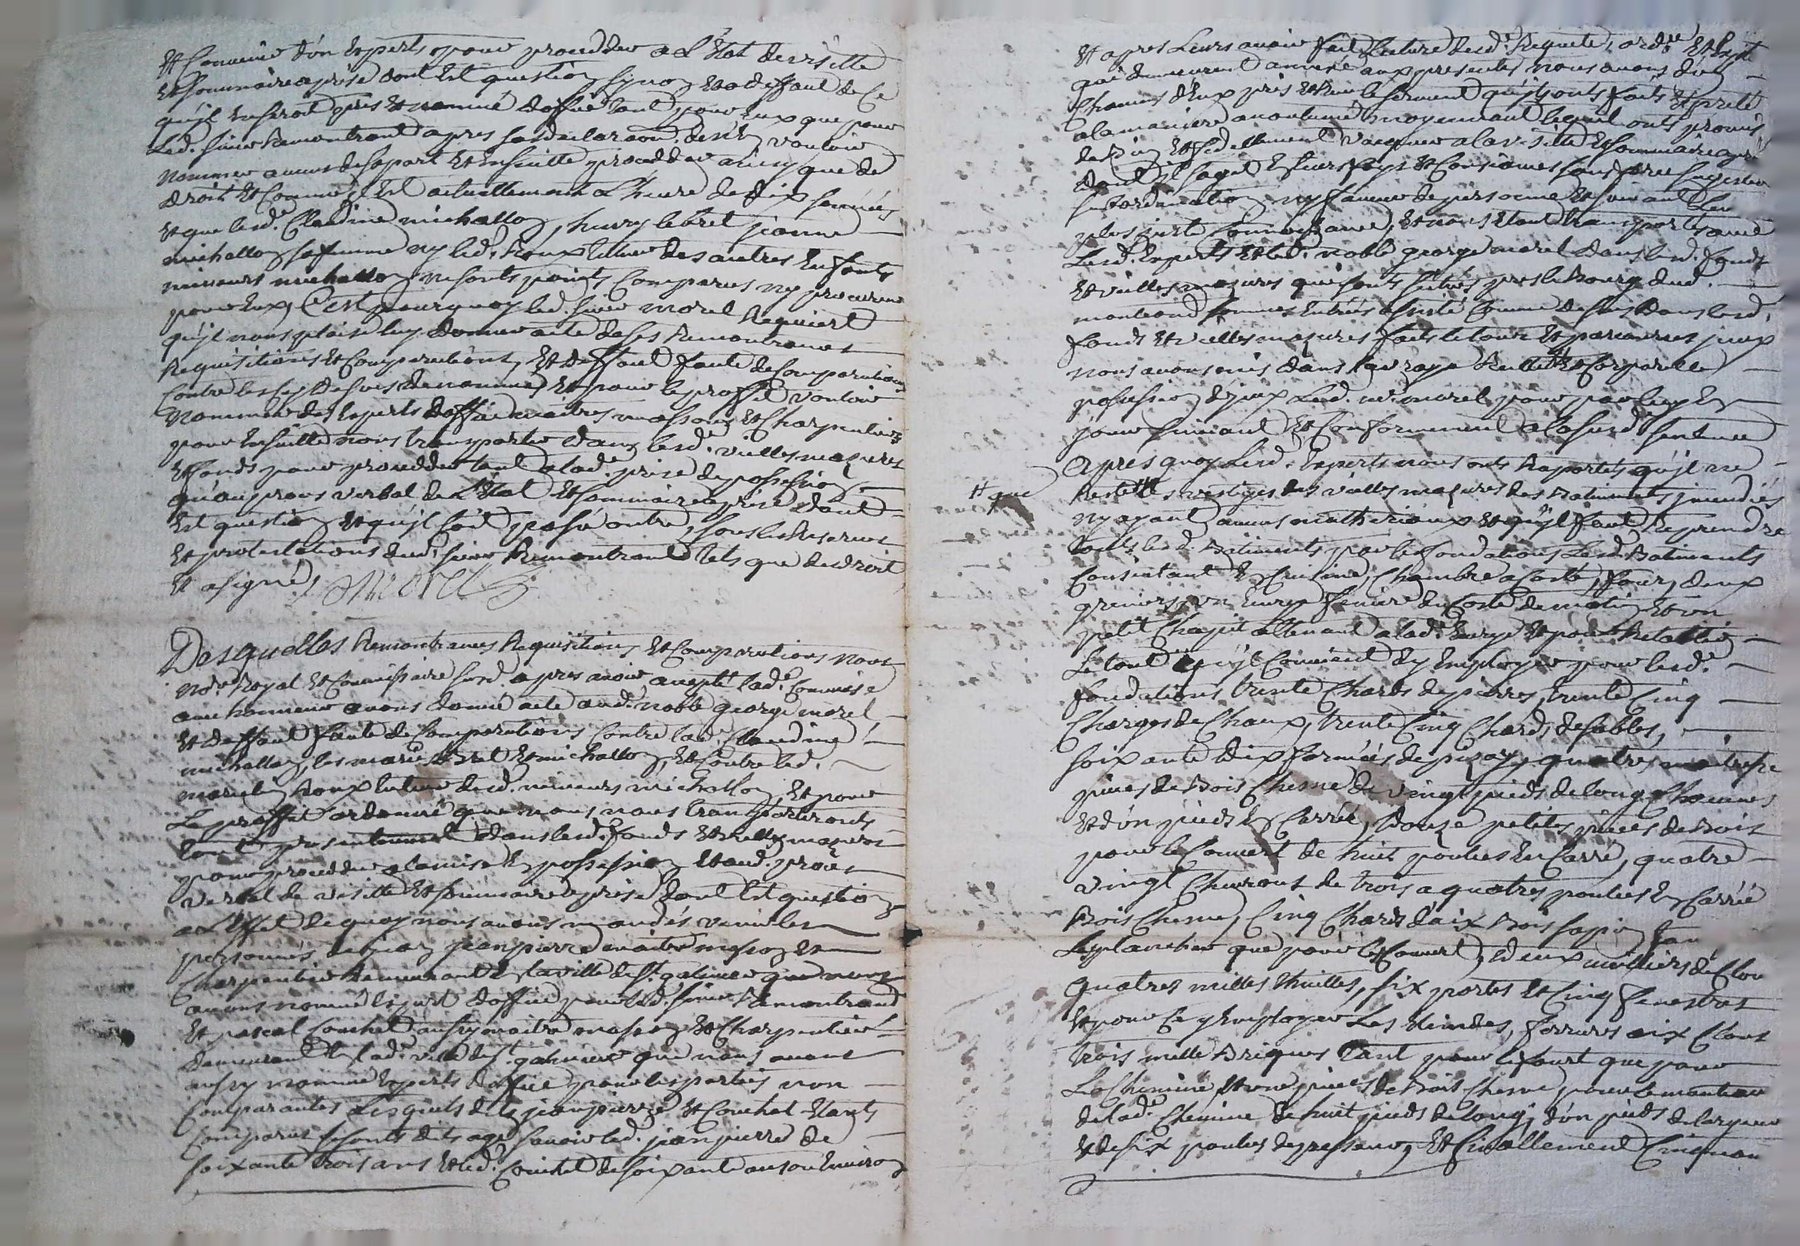 Et Convenir d'un Experts pour proceder a L'Etat de visitte
Et Sommaire aprise dont Est question, sinon Et a deffaut de ce
qu'il En seroit pris Et nommé d'office tant pour Eux que pour
Led. sieur Remontrant apres sa declaration de n'En vouloir
nommer aucun de sa part Et Ensuitte proceder ainsy que de
droit Et Comme Est actuellement L'heure de dix sonnées
Et que lesd. Claudine michallon, lebret jeanne
michallon sa femme ny led. Roux tuteur des autres Enfants
mineurs michallon ne sonts points Comparus ny procureur
pour Eux, C'est pourquoy led. sieur morel Requiert
qu'il nous plaise luy donner acte de ses Remontrances
Requisitions Et Comparutions, Et deffaut faute de Comparution
Contre les cy dessus denommés, Et pour le proffit vouloir
Nommer des Experts d'office maitres massons Et Charpentiers
pour Ensuitte nous transporter dans lesd. vielles mazures
Et fonds pour proceder tant a lad. prise de possession
qu'au proces verbal de L'Etat Et sommaire aprise dont
Est question Et qu'il soit passé outre, sous les Reserves
Et protestations dud. sieur Remontrant tels que de droit
Et a signé, Morel
Desquelles Remontrances Requisitions Et Comparutions nous
no.re Royal Et Commissaire susd. apres avoir accepté lad. Commission
avec honneur avons donné acte aud. noble george morel
Et deffaut faute de Comparutions Contre lad. Claudine
michallon, les mariés lebret Et michallon, Et Contre led.
Roux tuteur desd. mineurs michallon, Et pour
Le proffit ordonné que nous nous transporterons
presentement dans lesd. fonds Et vielles mazures
pour proceder a la mise En possession Et aud. proces
verbal de visitte Et Sommaire aprise dont Est question
a L'Effet de quoy nous avons mandés venir les
personnes de jean pierre maitre masson Et
Charpentier demeurant En la ville de St. galmier que nous
avons nommé Expert d'office pour led. sieur Remontrant
Et pascal Couchet aussy maitre masson Et Charpentier
demeurant En lad. ville de St. galmier que nous avons
aussy nommé Experts d'office pour les parties non
Comparantes Lesquels dits jean pierre Et Couchet Etants
Comparus se sonts dits agés savoir led. jean pierre de
soixante trois ans Et led. Couchet de soixante ans ou Environ
Et apres Leurs avoir fait Lecture desd. Requete, ord.ce Et
qui demeurent annexé aux presentes nous avons d'un
Chacuns d'Eux pris Et Reçu le serment qu'ils onts faits Et preté
a la maniere acoutumé moyennant lequel onts promis
de Bien Et fidellement vacquer a la visitte Et Sommaire aprise
dont s'agit En leurs ames Et Consiences sans
subordination ny faveur de personne Et suivant leur
plus juste Connoissance, Et nous Etant transportés avec
Lesd. Experts Et led. noble george morel dans lesd. fonds
Et vielles mazures qui sonts situés pres le Bourg dud.
sommes Entrés assisté Comme dessus dans lesd.
fonds Et vielles mazures faits le tour Et parcourus iceux
nous avons mis dans la vraye Reelle Et Corporelle
possession d'iceux Led. n. morel pour par luy En
jouir suivant Et Conformement a la susd. sentence
Apres quoy Lesd. Experts nous onts Raportés qu'il ne
# que
Reste # vestiges des vielles mazures des Batiments incendiés
N'y ayant aucuns matheriaux Et qu'il faut Reprendre
touts lesd. Batiments par les fondations Lesd. Batiments
Consistant En Cuisine, Chambre a Costé, four, deux
greniers, un Ecurye feniere du Costé de matin Et un
petit Chapit attenant a lad. Ecurye Et pour Retablir
Le tout qu'il Convient En Employer pour lesd.
fondations trente Chards de pierres, trente Cinq
Charges de Chaux, trente Cinq Chards de sables,
soixante dix formées de pizay, quatres maitresse
pieces de Bois Chesne de vingt pieds de long
Et d'un pieds En Carré, douze petites pieces de Bois
pour le Couvert de huit pouces En Carré, quatre
vingt Chevrons de trois a quatres pouces En Carré
Bois Chesne, Cinq Chards d'aix Bois sapin tan
Les plancher que pour le Couvert, deux milliers de Clou
quatres milles thuilles, six portes Et Cinq fenestres
Et pour Ce y Employer Les Ferrures aix Clous
trois mille Briques tant pour le fourt que pour
La Cheminé Et une piece de Bois Chesne pour le manteau
de lad. Cheminé de huit pieds de long, d'un pieds de largeur
Et de six pouces d'epesseur, Et finallement Cinquan